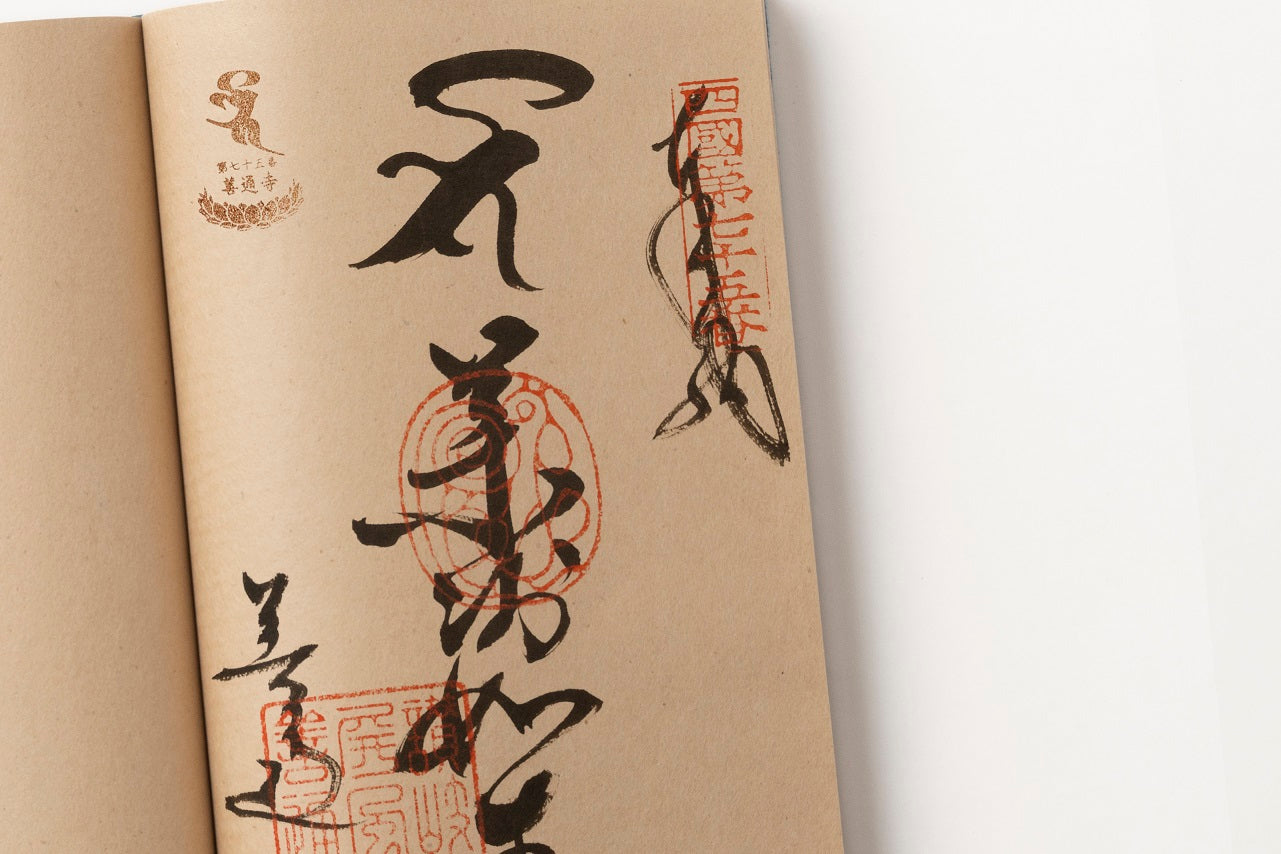 四國第七十五番
奉納
薬師如
善通
第七十五番
善通寺